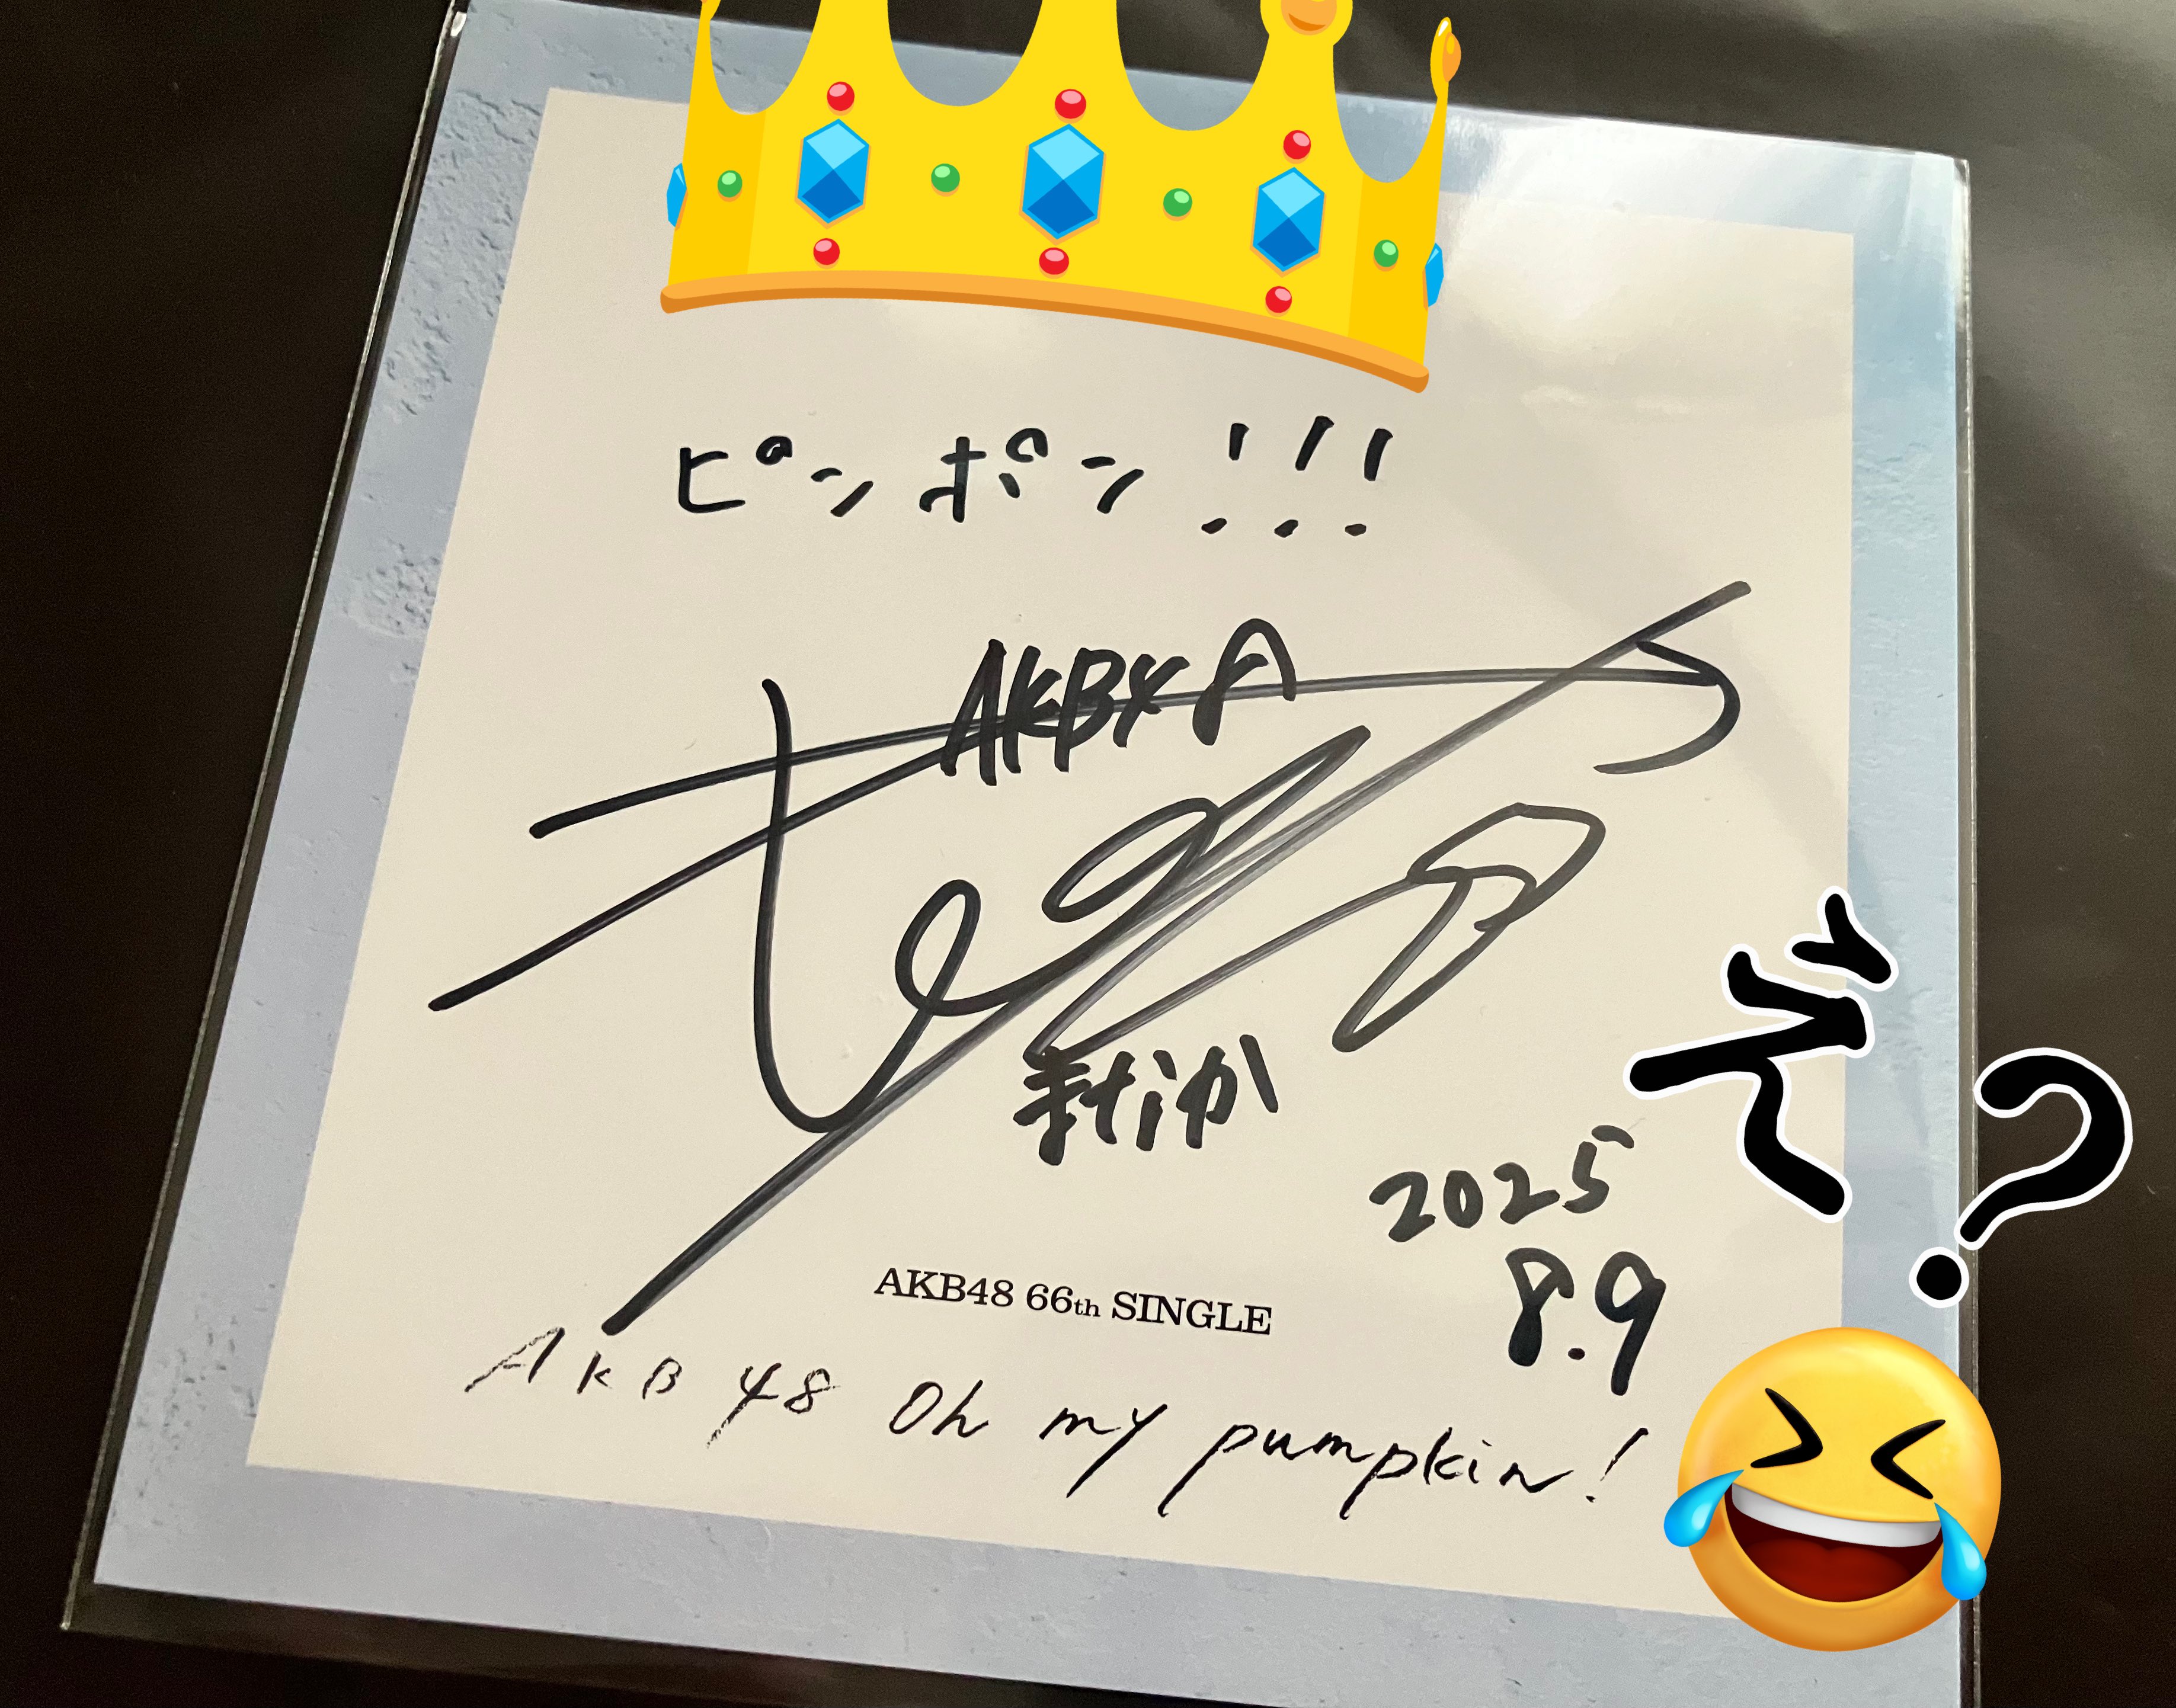 ピンポン!!!
AKB48
え゛?
2025
8.9
AKB48 66th SINGLE
AKB 48 Oh my pumpkin!